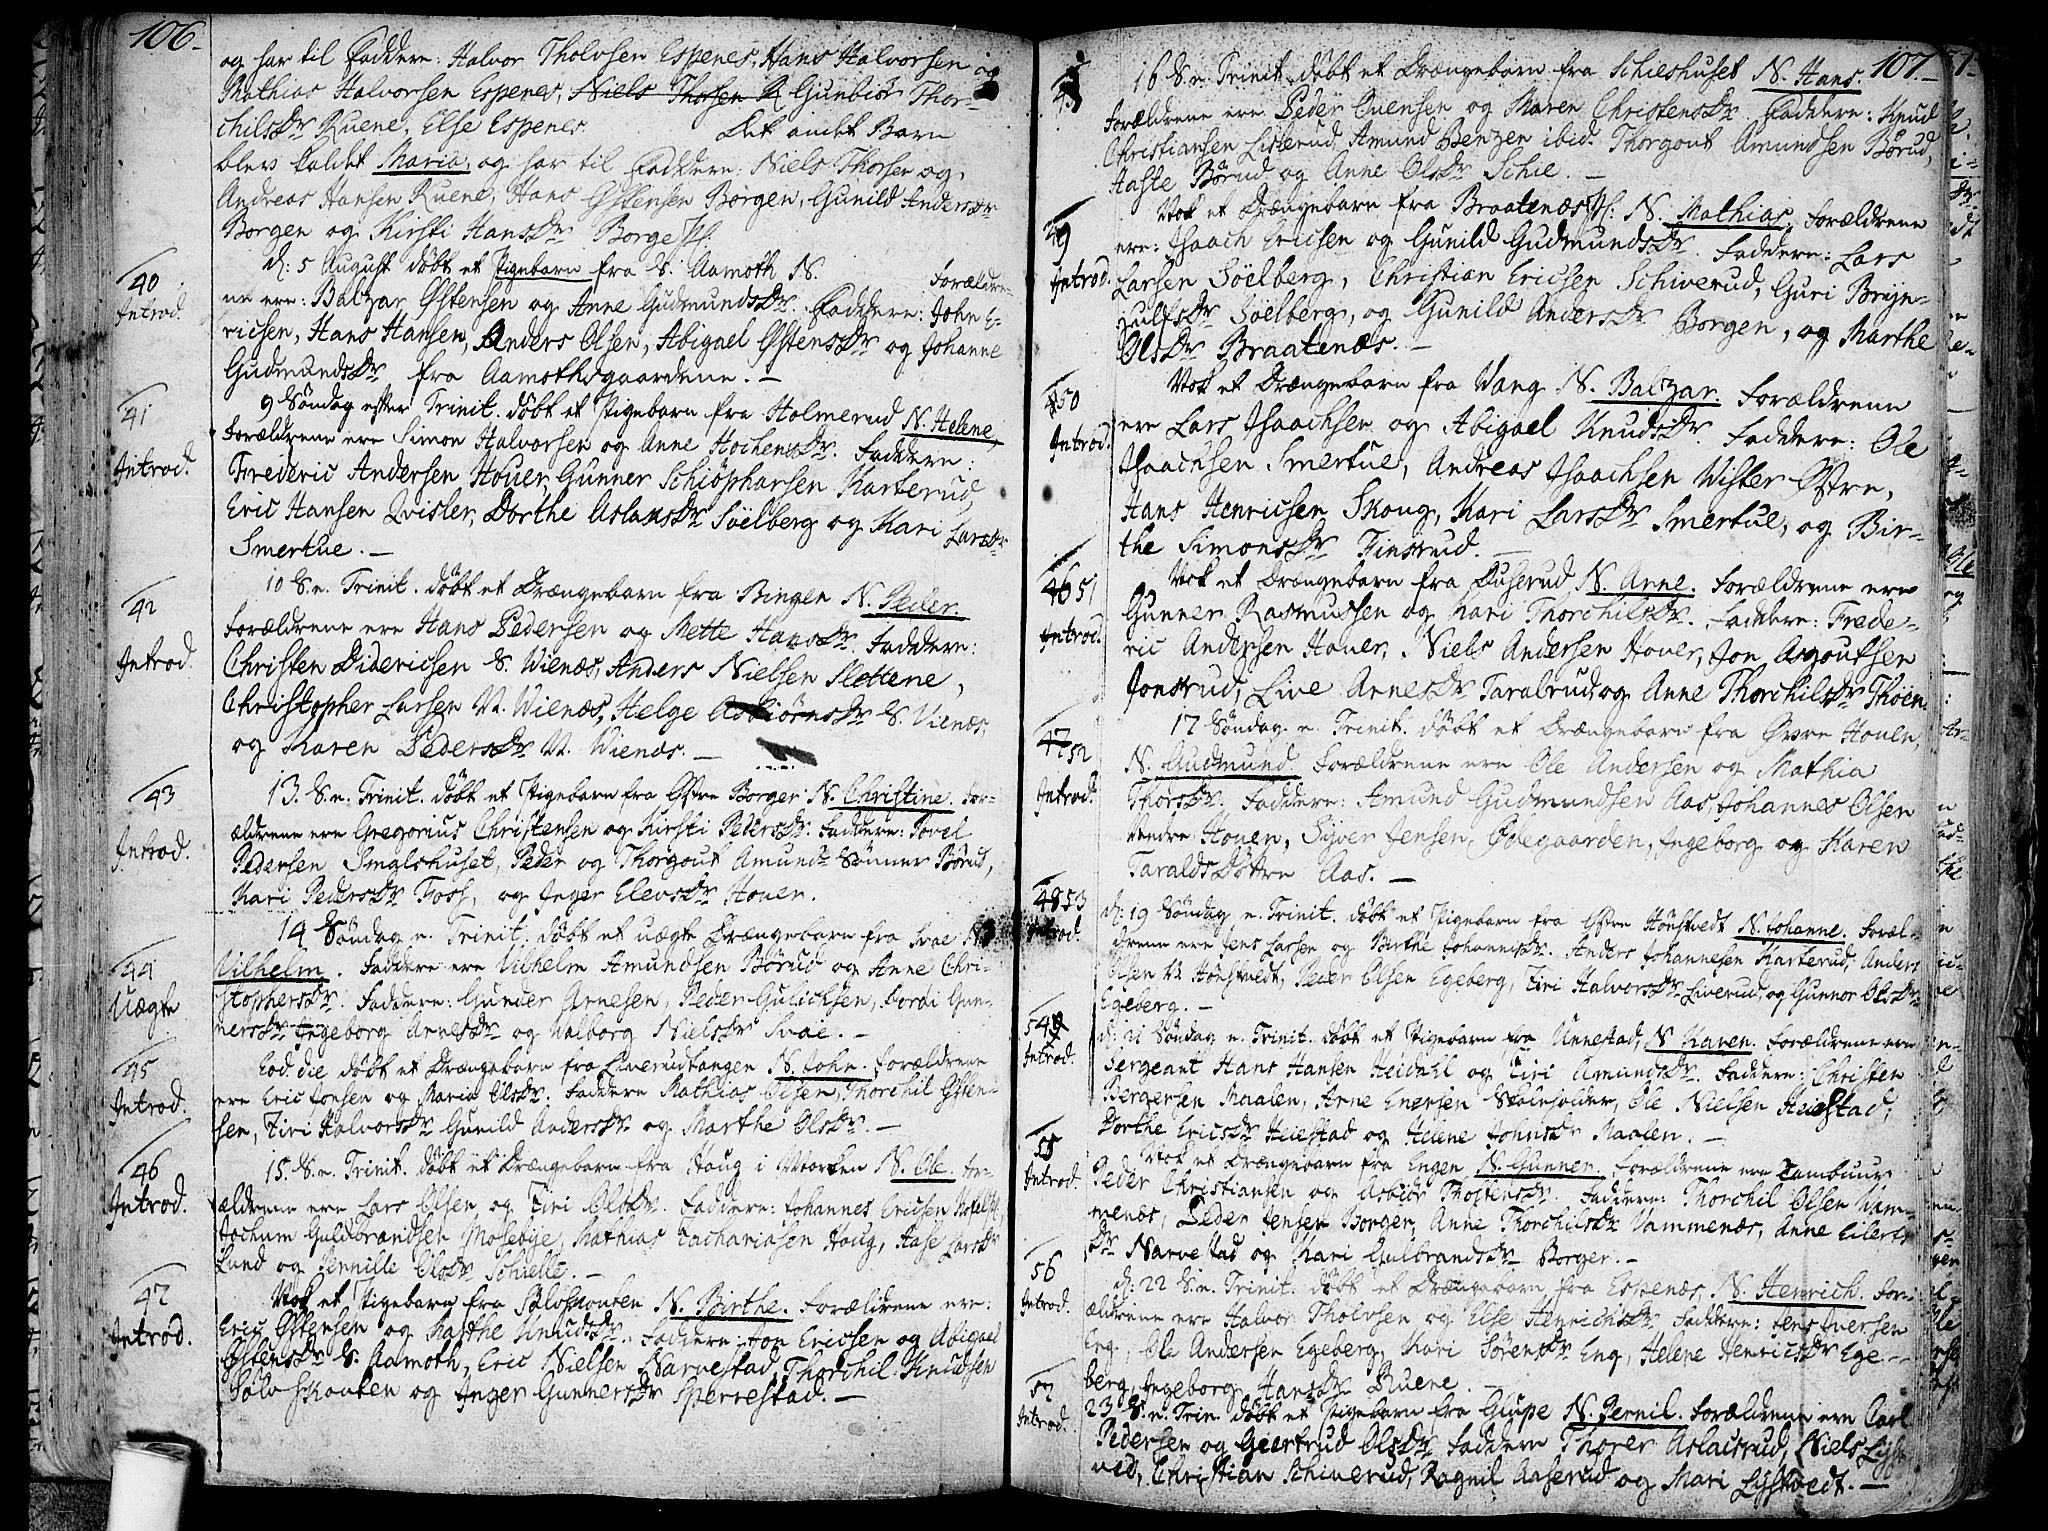 106.
og har til Faddere: Halvor Tholvsen Espenes, Hans Halvorsen og
Mathias Halvorsen Espenes, Niels Thorsen R Gunbiør Thor-
chilsdr Ruene, Else Espenes. Det andet Barn
blev kaldet Maria, og har til Faddere: Niels Thorsen og
Andreas Hansen Ruene, Hans Østensen Borgen, Gunild Andersdr
Borgen og Kirsti Hansdr Borge
40
Introd.
d: 5 August døbt et Pigebarn fra S. Aamoth N. Forældre-
ne ere: Balzar Østensen og Anne Gudmundsdr. Faddere: John E-
ricsen, Hans Hansen, Anders Olsen, Abigael Østensdr og Johanne
Gudmundsdr fra Aamothgaardene. —
41
Introd.
9 Søndag efter Trinit. døbt et Pigebarn fra Holmerud N. Helene,
Forældrene ere Simon Halvorsen og Anne Hochensdr. Faddere:
Frederic Andersen Houer, Gunner Schiøpharsen Karterud,
Eric Hansen Qvisler, Dorthe Aslaksdr Søelberg og Kari Larsdr
Smertue. —
42
Introd.
10 S. e. Trinit. døbt et Drængebarn fra Bingen N. Peder.
Forældrene ere Hans Pedersen og Mette Hansdr. Faddere:
Christen Didericsen S. Wienæs, Anders Nielsen Slottene,
Christopher Larsen N. Wienæs, Helge Asbiørnsdr S. Vienæs,
og Karen Pedersdr N. Wienæs. —
43
Introd.
13. S. e. Trinit. døbt et Pigebarn fra Østre Borger N. Christine. For-
ældrene ere Gregorius Christensen og Kirsti Pedersdr. Faddere: Povel
Pedersen Smglshuset, Peder og Thorgout Amunds Sønner Børud,
Kari Pedersdr Foss, og Inger Elevsdr Houer.
44
Uægte
14 Søndag e. Trinit. døbt et uægte Drængebarn fra Svae N.
Vilhelm. Faddere ere Vilhelm Amundsen Børud og Anne Chri-
stophersdr. Faddere: Gunder Arnesen, Peder Gulichsen, Jordi Gun-
nersdr Ingeborg Arnesdr og Valborg Nielsdr Svae. —
45
Introd.
Eod. die døbt et Drængebarn fra Liverudtangen N. John. Forældrene
ere Eric Jonsen og Maria Olsdr. Faddere Mathias Olsen, Thorchil Østen-
sen, Tiri Halvorsdr Gunild Andersdr og Marthe Olsdr. —
46
Introd.
15. S. e. Trinit. døbt et Drængebarn fra Haug i Marken N. Ole. For-
ældrene ere Lars Olsen og Tiri Olsdr. Faddere: Johannes Ericsen
Jochum Guldbrandsen Mosebye, Mathias Zachariasen Haug, Aase Larsdr
Lund og Pernille Olsdr Schielle. —
47
Introd.
Nok et Pigebarn fra Sølvskouten N. Birthe. Forældrene ere:
Eric Østensen og Marthe Knudsdr. Faddere: Jon Ericsen og Abigael
Østensdr S. Aamoth, Eric Nielsen Narvestad, Thorchil Knudsen
Sølvskouten og Inger Gunnersdr Sperrestad. —
107.
16 S. e. Trinit. døbt et Drængebarn fra Schieshuset N. Hans.
Forældrene ere Peder Evensen og Maren Christensdr. Faddere: Knud
Christiansen Listerud, Amund Bentzen ibid. Thorgout Amundsen Børud,
Haste Børud og Anne Olsdr Schie. —
49
Introd.
Nok et Drængebarn fra Braatenæs N. Mathias, Forældrene
ere: Isaach Ericsen og Gunild Gudmundsdr. Faddere: Lars
Larsen Søelberg, Christian Ericsen Schiverud, Guri Bryn-
julfsdr Søelberg, og Gunild Andersdr Borgen, og Marthe
Olsdr Braatenæs. —
50
Introd.
Nok et Drængebarn fra Vang N. Balzar. Forældrene
ere Lars Isaachsen og Abigael Knudsdr. Faddere: Ole
Isaachsen Smertue, Andreas Isaachsen Vister Østre,
Hans Henricsen Skoug, Kari Larsdr Smertue, og Bir-
the Simonsdr Finsrud. —
46 51
Introd.
Nok et Drængebarn fra Duserud N. Anne. Forældrene ere
Gunner Rasmussen og Kari Thorchilsdr. Faddere: Frede-
ric Andersen Houer, Niels Andersen Houer, Jon Asgoutsen
Jonsrud, Live Arnesdr Taralrud, og Anne Thorchilsdr Thoen.
47 52
Introd.
17 Søndag e. Trinit. døbt et Drængebarn fra Øvre Houen,
N. Gudmund. Forældrene ere Ole Andersen og Mathia
Thorsdr. Faddere: Amund Gudmundsen Aas, Johannes Olsen
Nendre Houen, Syver Jensen Ødegaarden, Ingeborg og Karen
Taralds Døttre Aas. —
48 53
Introd.
d: 19 Søndag e. Trinit. døbt et Pigebarn fra Østre Hønstvedt N. Johanne. Foræl-
drene ere Jens Larsen og Birthe Johannisdr. Anders Johannesen Karterud, Anders
Olsen N. Hønstvedt, Peder Olsen Egeberg, Tiri Halvorsdr Liverud, og Gunnor Olsdr
Egeberg. —
54
Introd.
d: 21 Søndag e. Trinit. døbt et Pigebarn fra Unnestad, N. Karen. Forældrene ere
Sergeant Hans Hansen Heidahl og Tiri Amundsdr. Faddere: Christen
Bergersen Maalen, Arne Enersen Skoleholder, Ole Nielsen Heiestad,
Dorthe Ericsdr Heiestad og Helene Johnsdr Maalen. —
55
Introd.
Nok et Drængebarn fra Engen N. Gunner. Forældrene ere Tambuur
Peder Christiansen og Asbiør Thostensdr. Faddere: Thorchil Olsen Vam-
menæs, Peder Jensen Borger, Anne Thorchilsdr Vammenæs, Anne Eilerts
Dr Narvestad og Kari Gulbrandsdr Borger. —
56
Introd.
d: 22 S. e. Trinit. døbt et Drængebarn fra Espenæs N. Henrich. For-
ældrene ere Halvor Tholvsen og Else Henrichsdr. Faddere: Jens Iversen
Eng, Ole Andersen Egeberg, Kari Sørensdr Eng, Helene Henricsdr Ege-
berg, Ingeborg Hansdr Ruene. —
57
Introd.
23 S. e. Trin. døbt et Pigebarn fra Giupe N. Pernil. Forældrene ere Carl
Pedersen og Geertrud Olsdr Faddere Thorer Aslacsrud, Niels Lyst-
ved, Christian Schiverud, Ragnil Aaserud og Mari Lystvedt. —